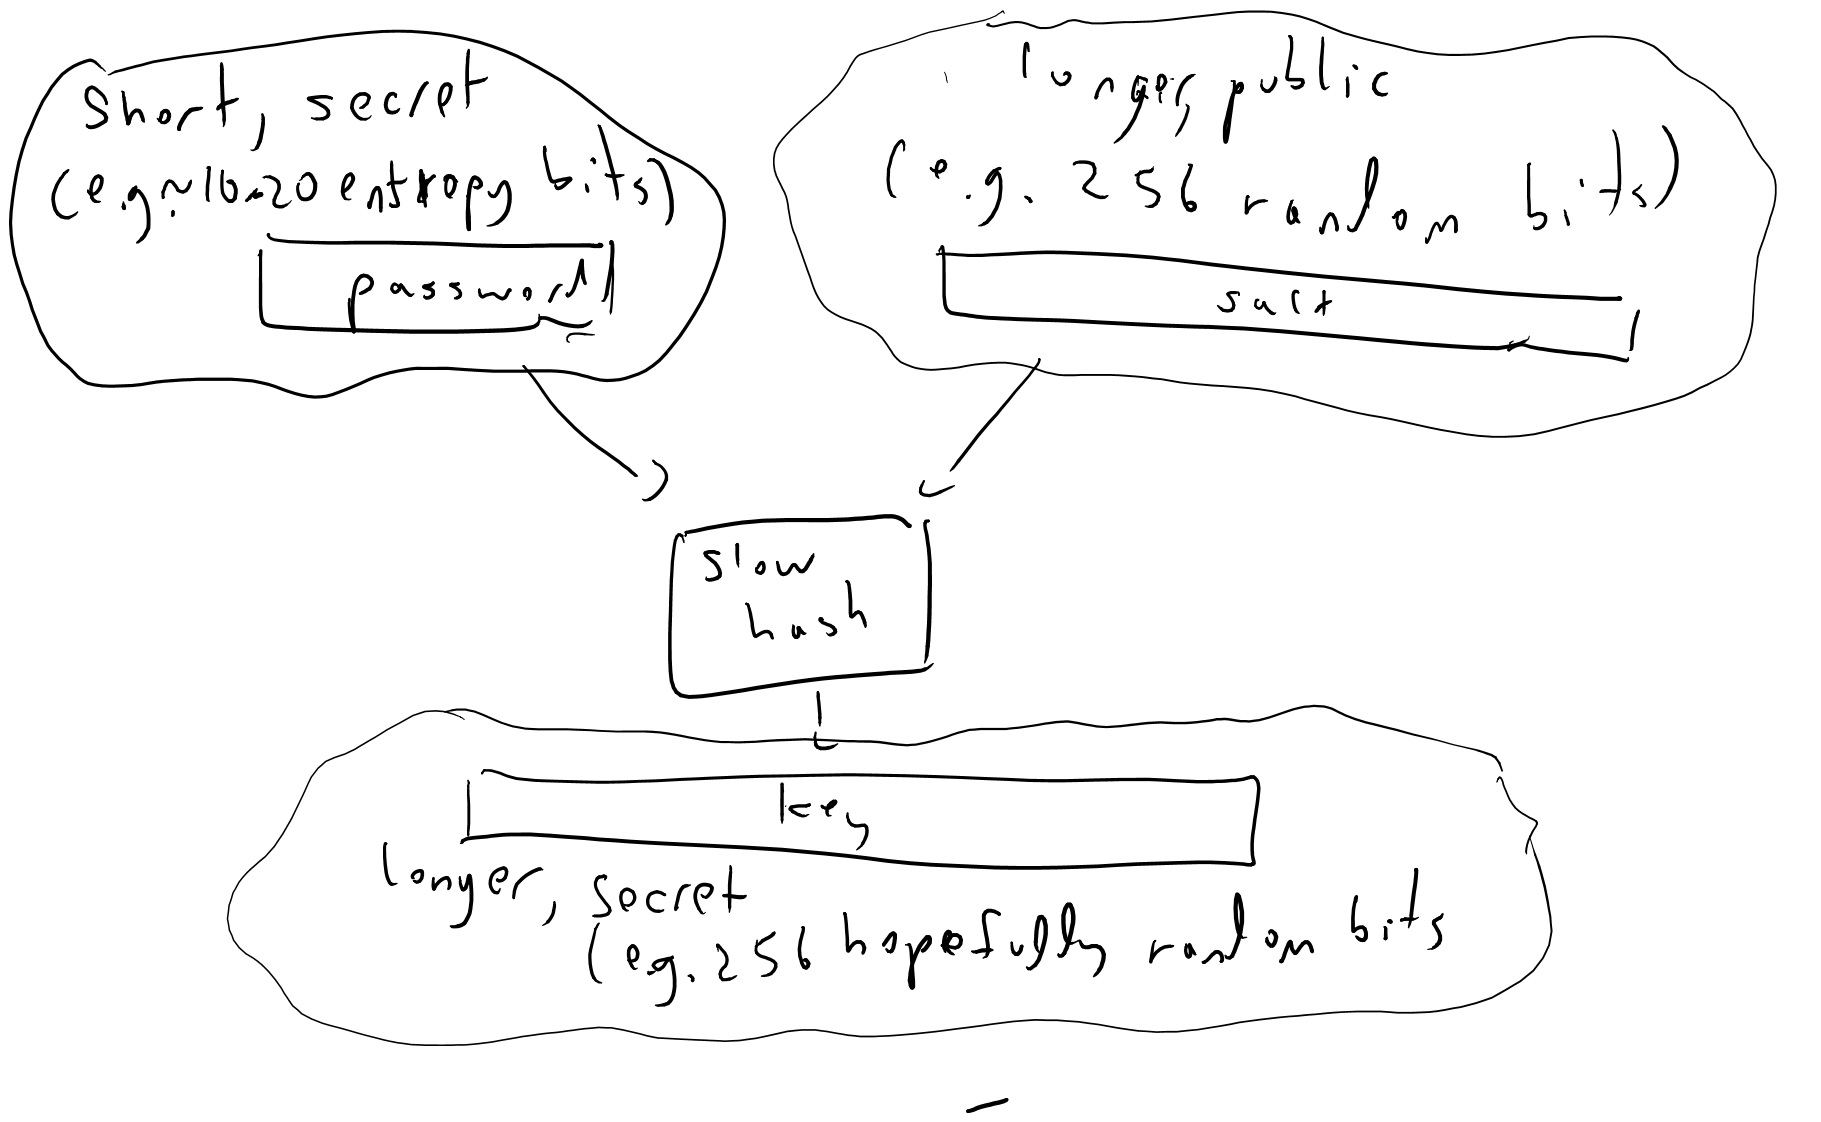 short, secret
(e.g. ~10-20 entropy bits)
password
longer, public
(e.g. 256 random bits)
salt
slow
hash
key
longer, secret
(e.g. 256 hopefully random bits